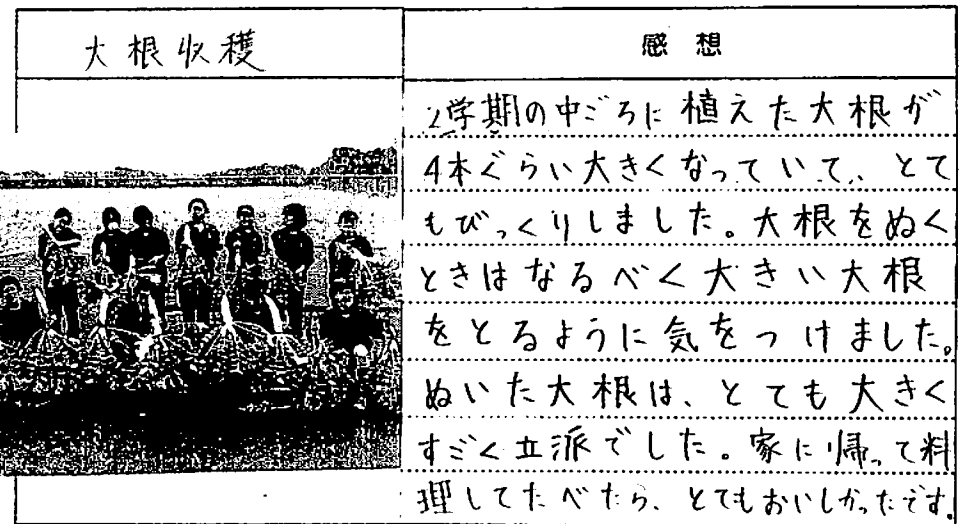 大根収穫
感想
2学期の中ごろに植えた大根が
4本ぐらい大きくなっていて、とて
もびっくりしました。大根をぬく
ときはなるべく大きい大根
をとるように気をつけました。
ぬいた大根は、とても大きく
すごく立派でした。家に帰って料
理してたべたら、とてもおいしかったです。